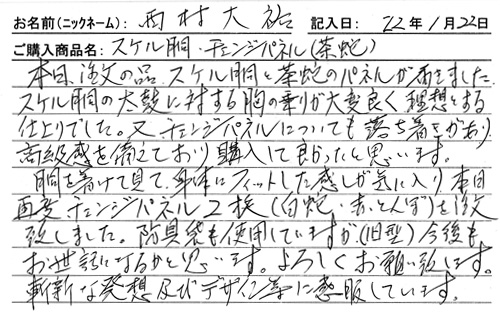 お名前(ニックネーム): 西村大祐 記入日: 22年1月22日
ご購入商品名: スケル胴・チェンジパネル(茶蛇)
本日、注文の品、スケル胴と茶蛇のパネルが届きました。
スケル胴の太鼓に対する胸の乗りが大変良く理想とする
仕上りでした。又チェンジパネルについても落ち着きがあり
高級感を備えており購入して良かったと思います。
胴を着けて見て、身体にフィットした感じが気に入り本日
再度チェンジパネル2枚(白蛇・赤とんぼ)を注文
致しました。防具袋も使用していますが、(旧型)今後も
お世話になるかと思います。よろしくお願い致します。
斬新な発想及びデザイン等に感服しています。